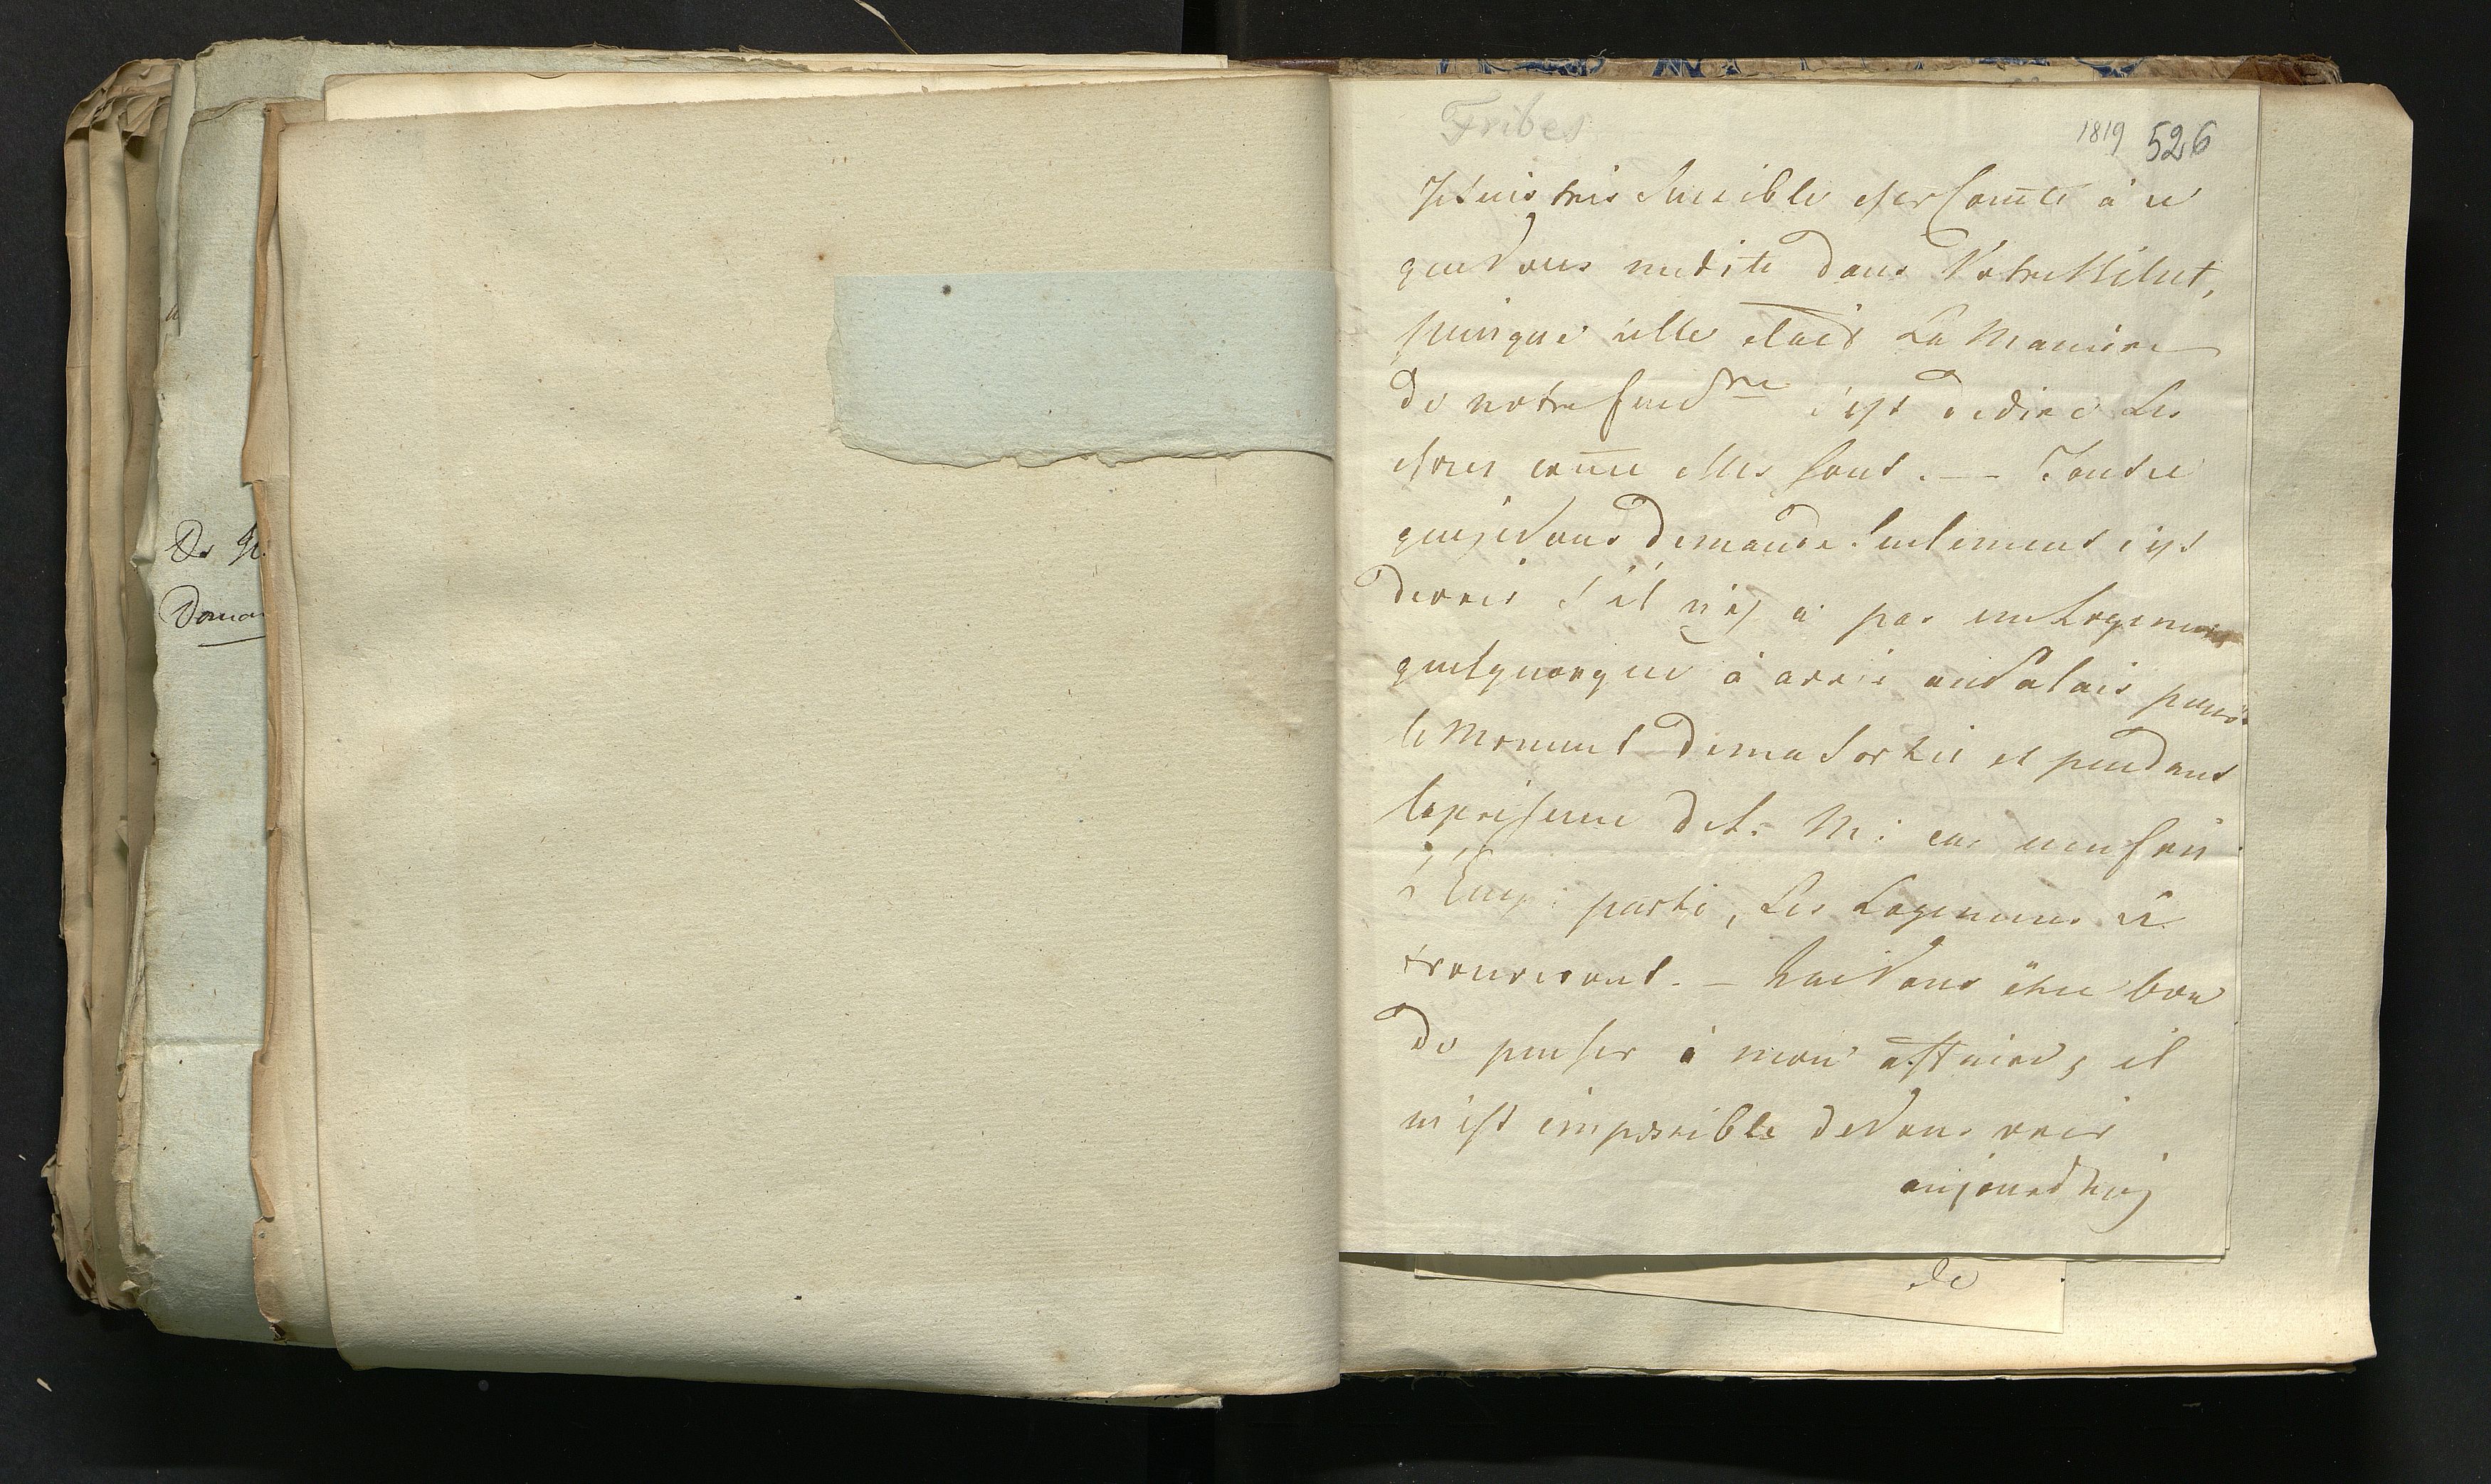 De
Doman
Fribes
1819 526
Je suis tres sensible cher Comte à ce
que Vous me dite dans Votre Billet,
puisque telle etais La Maniere
de notre feu
c'est de dire Les
choses com̄e elles sont. — Tout ce
que je Vous Demande seulement c'est
devoir s'il n'ÿ a pas un Logement
quelquonque à avoir au Palais pour
le Moment de ma Sortie et pendant
la presence de S. M: car une fois
l'Emp: parti, Les Logemens se
trouveront. — Mais Vous être bon
de penser à mon affaire, il
m'est impossible de Vous voir
aujourd'huÿ
de